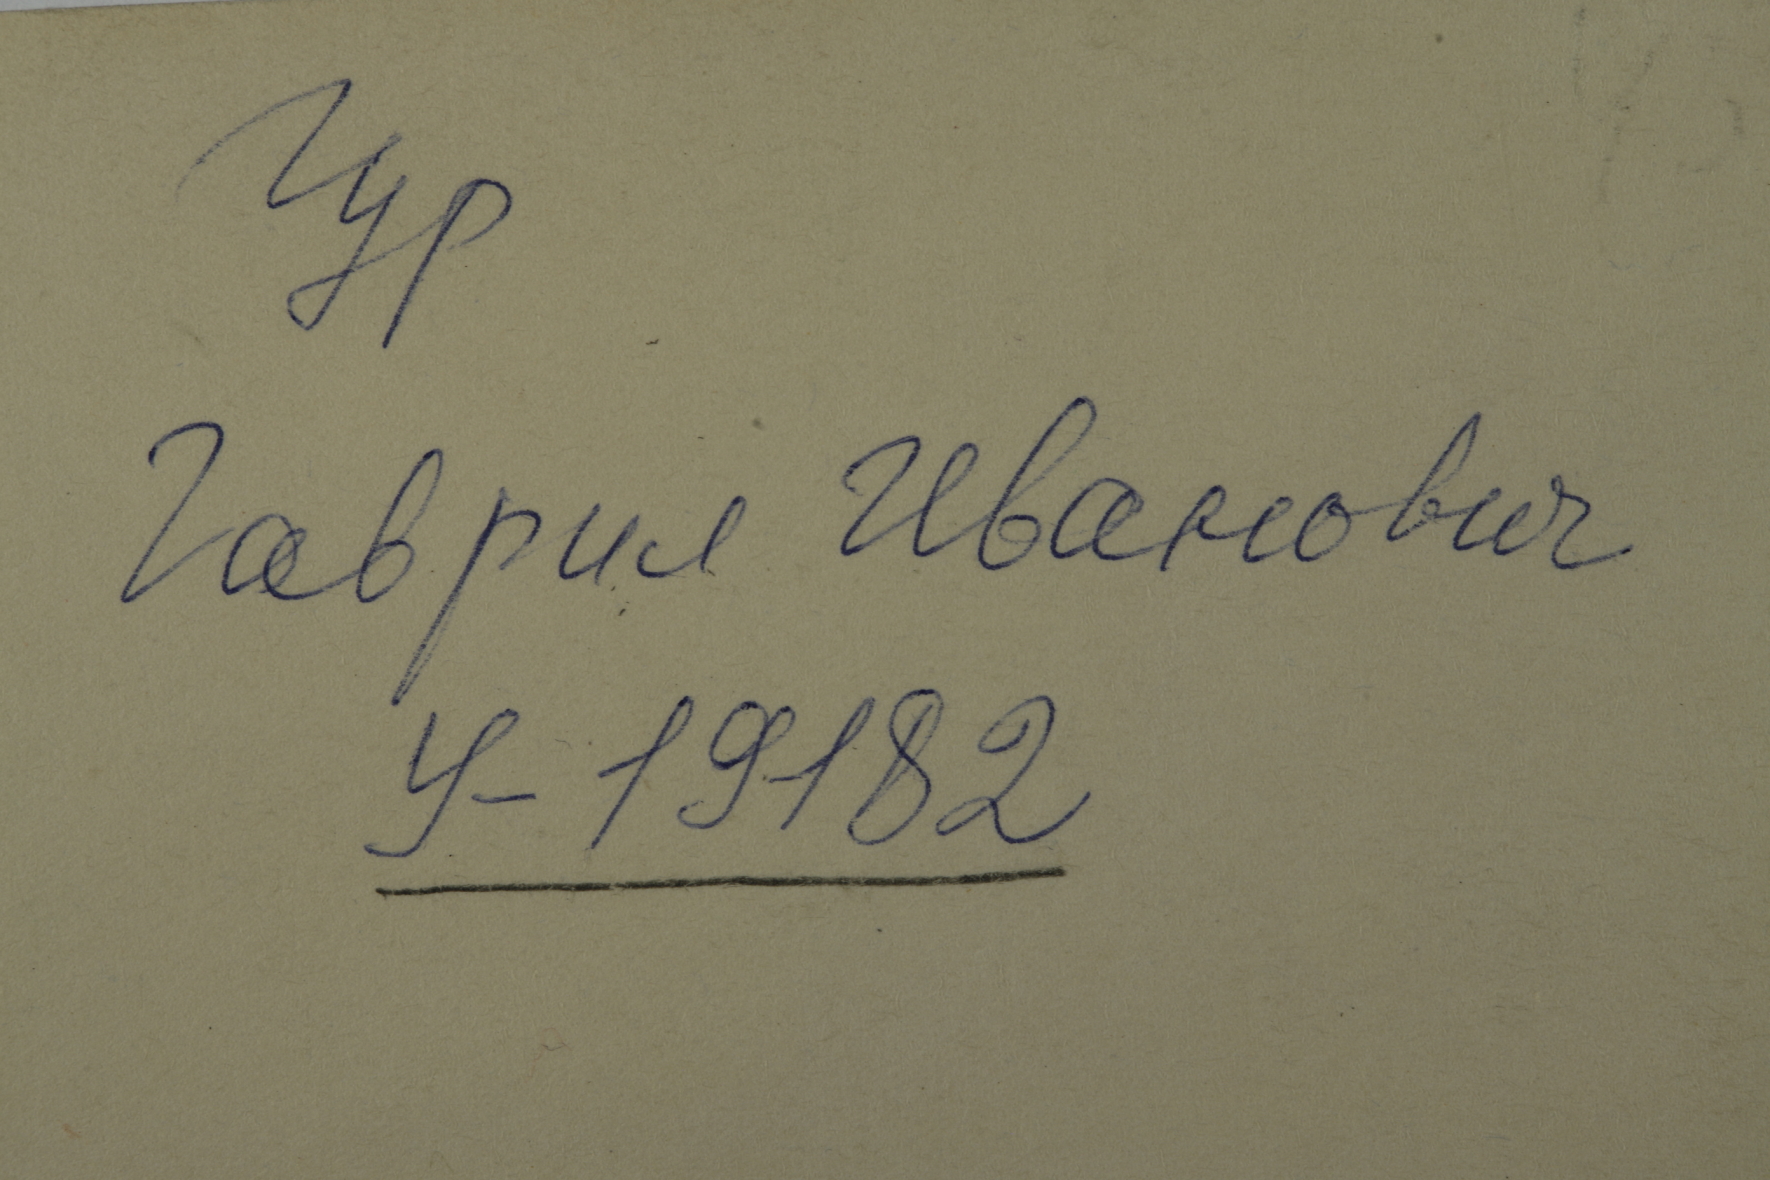 Гур
Гаврил Иванович
У-19182